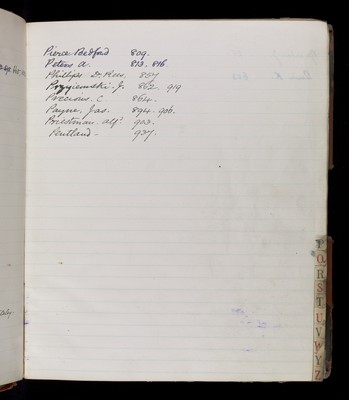 Pierce Bedford 809.
Peters A. 813. 816
Phillips. Dr Rees. 857
J. 862. 919
Precious. C 864.
Payne. Jas. 894. 906.
Priestman. Alf^d 923.
Pentland - 937.
P
Q
R
S
T
U
V
W
Y
Z